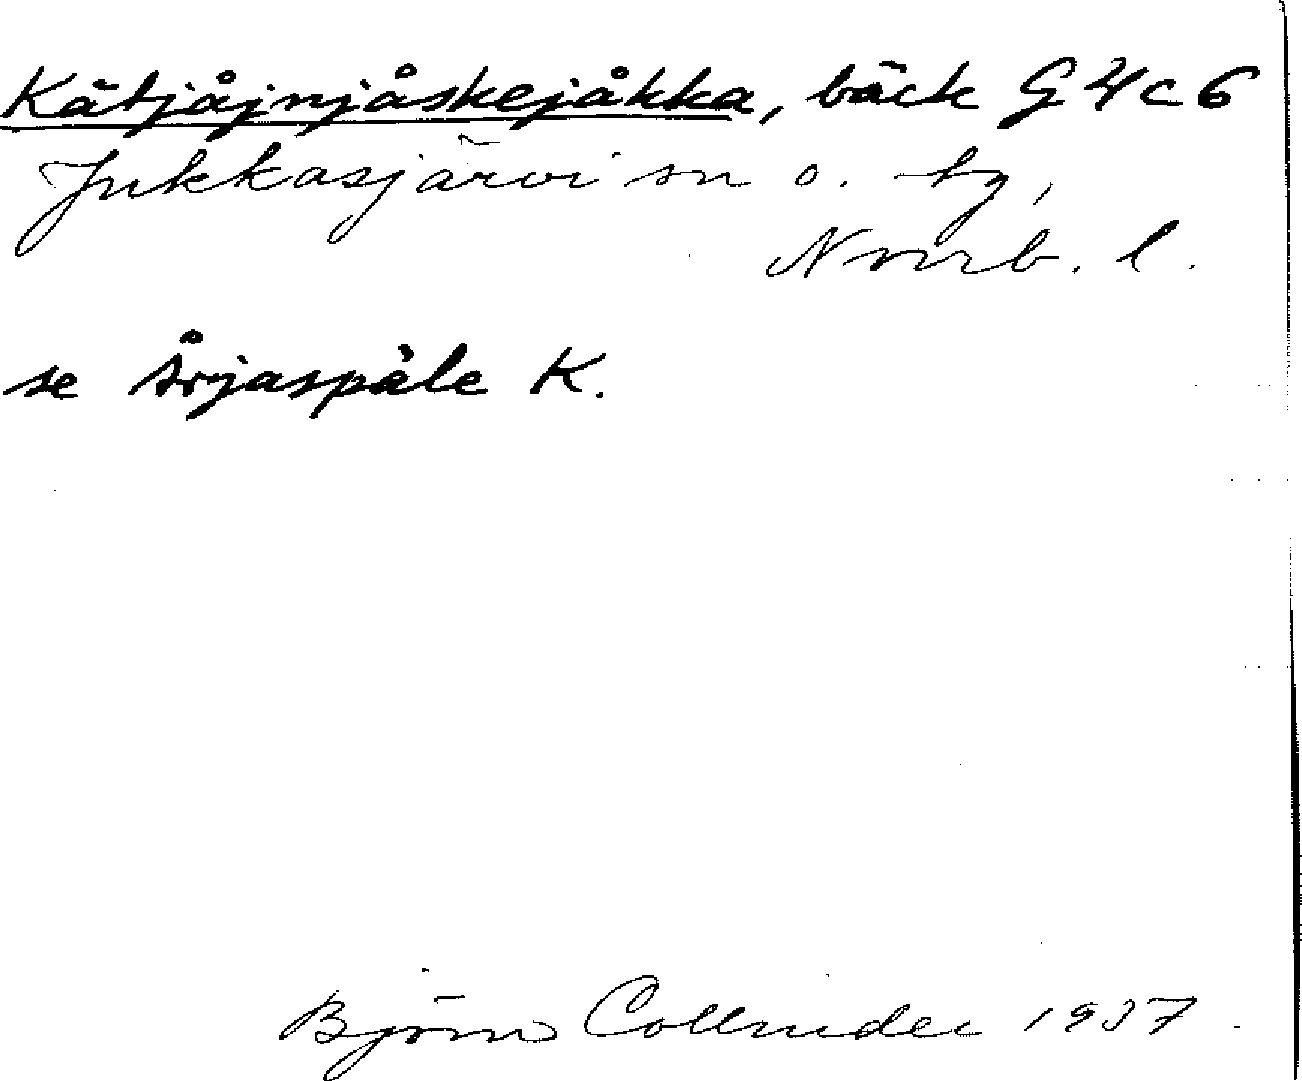 Kätjåjnjåskejåkka, bäck G4c6
Jukkasjärvi sn o. tg,
Norrb. l.
se Årjaspåle K.
Björn Collinder 1937